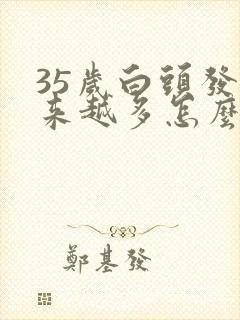 35歲白頭發
來越多怎麼
鄭基發